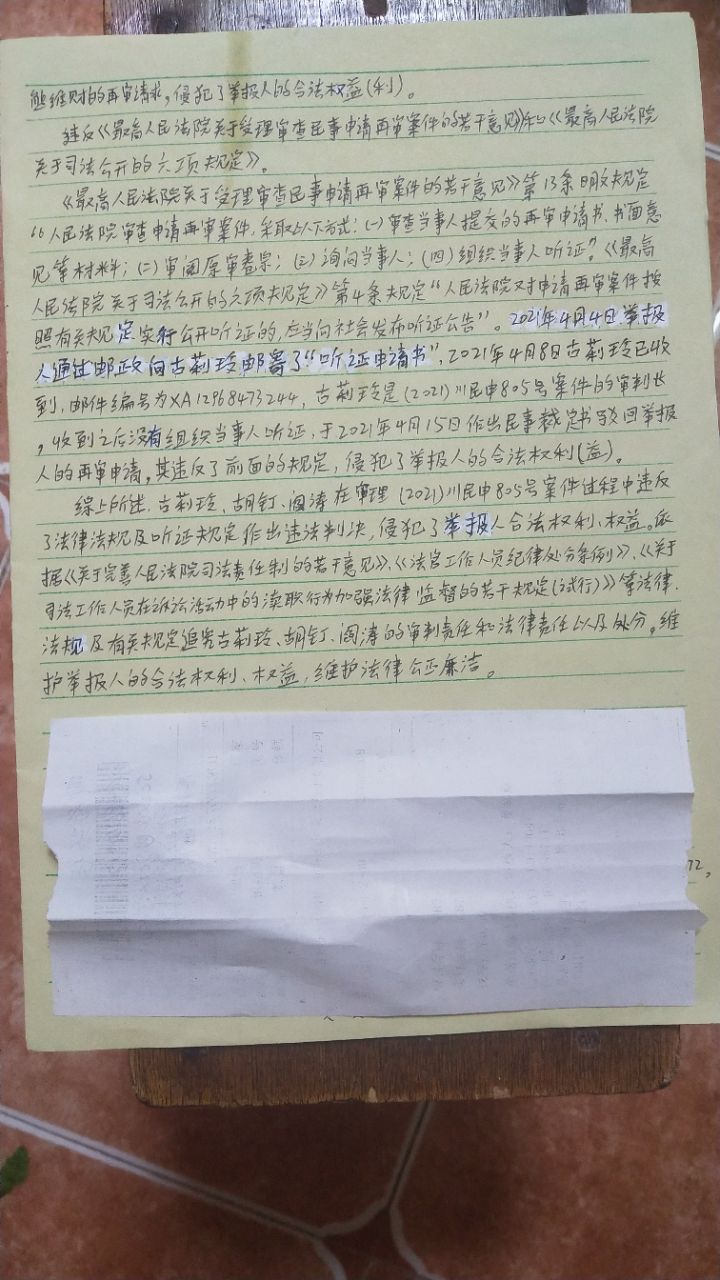 能维财的再审请求，侵犯了举报人的合法权益(利)。
违反《最高人民法院关于受理审查民事申请再审案件的若干意见》和《最高人民法院
关于司法公开的六项规定》。
《最高人民法院关于受理审查民事申请再审案件的若干意见》第13条明文规定
“人民法院审查申请再审案件，采取以下方式：(一)审查当事人提交的再审申请书、书面意
见等材料；(二)审阅原审卷宗；(三)询问当事人；(四)组织当事人听证”。《最高
人民法院关于司法公开的六项规定》第4条规定“人民法院对申请再审案件按
照有关规定实行公开听证的，应当向社会发布听证公告”。2021年4月4日举报
人通过邮政向古莉玲邮寄了“听证申请书”，2021年4月8日古莉玲已收
到，邮件编号为XA12968473244，古莉玲是(2021)川民申805号案件的审判长
，收到之后没有组织当事人听证，于2021年4月15日作出民事裁定书驳回举报
人的再审申请，其违反了前面的规定，侵犯了举报人的合法权利(益)。
综上所述，古莉玲、胡钉、阎涛在审理(2021)川民申805号案件过程中违反
了法律法规及听证规定作出违法判决，侵犯了举报人合法权利、权益。依
据《关于完善人民法院司法责任制的若干意见》、《法官工作人员纪律处分条例》、《关于
司法工作人员在诉讼活动中的渎职行为加强法律监督的若干规定(试行)》等法律、
法规及有关规定追究古莉玲、胡钉、阎涛的审判责任和法律责任以及处分。维
护举报人的合法权利、权益，维护法律公正廉洁。
72,